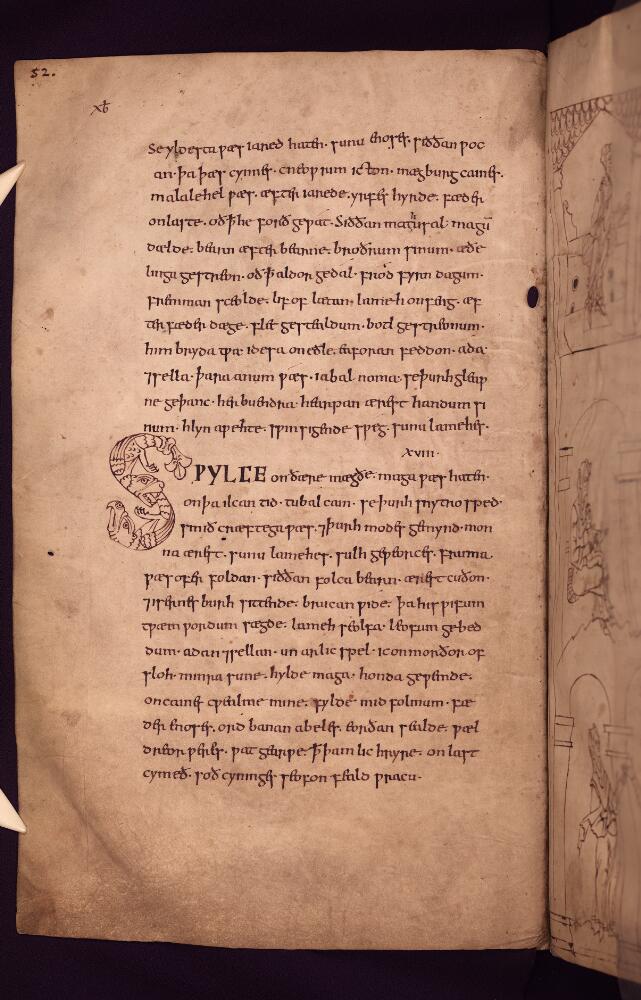 52.
xƀ
Se yldesta wæs iared haten· sunu enoses· siððan woc
an· þa þæs cynnes· cneowrim icton· mægburg caines·
malalehel wæs· æfter iarede· yrfes hyrde· fæder
on laste· oð þ he forð gewat· Siððan mathusal· magū
dælde· bearn æfter bearne· broðrum sinum· æðe
linga gestreon· oð þ aldor gedal· frod fyrn dagum·
fremman sceolde· lif of lætan, lameh onfeng· æf
ter fæder dæge· flet gestealdum· botl gestreonum·
him bryda twa· idesa on eðle· eaforan feddon· ada·
⁊sella· þara anum wæs· iabal noma· se þurh gleaw
ne geþanc· her buendra· hearpan ærest· handum si
num· hlyn awehte· swinsigende sweg· sunu lamehes·
xviii·
SWYLCE on ðære mægðe· maga wæs haten·
on þa ilcan tid· tubal cain· se þurh snytro sped·
smið cræftega wæs· ⁊þurh modes gemynd· mon
na ærest· sunu lamehes· sulh geweorces· fruma·
wæs ofer foldan· siððan folca bearn· æres cuðon·
⁊isernes burh sittende· brucan wide· þa his wifum
twæm wordum sægde· lameh seolfa· leofum gebed
dum· adan ⁊sellan· un arlic spel· ic on morðor of
sloh· minra sune· hylde maga· honda gewemde·
on caines cwealme mine· fylde· mid folmum· fæ
der enoses· ord banan abeles· eorðan sealde· wæl
dreor weres· wat gearwe· þ þam lic hryre· on last
cymeð· soð cyninges seofon feald wracu·